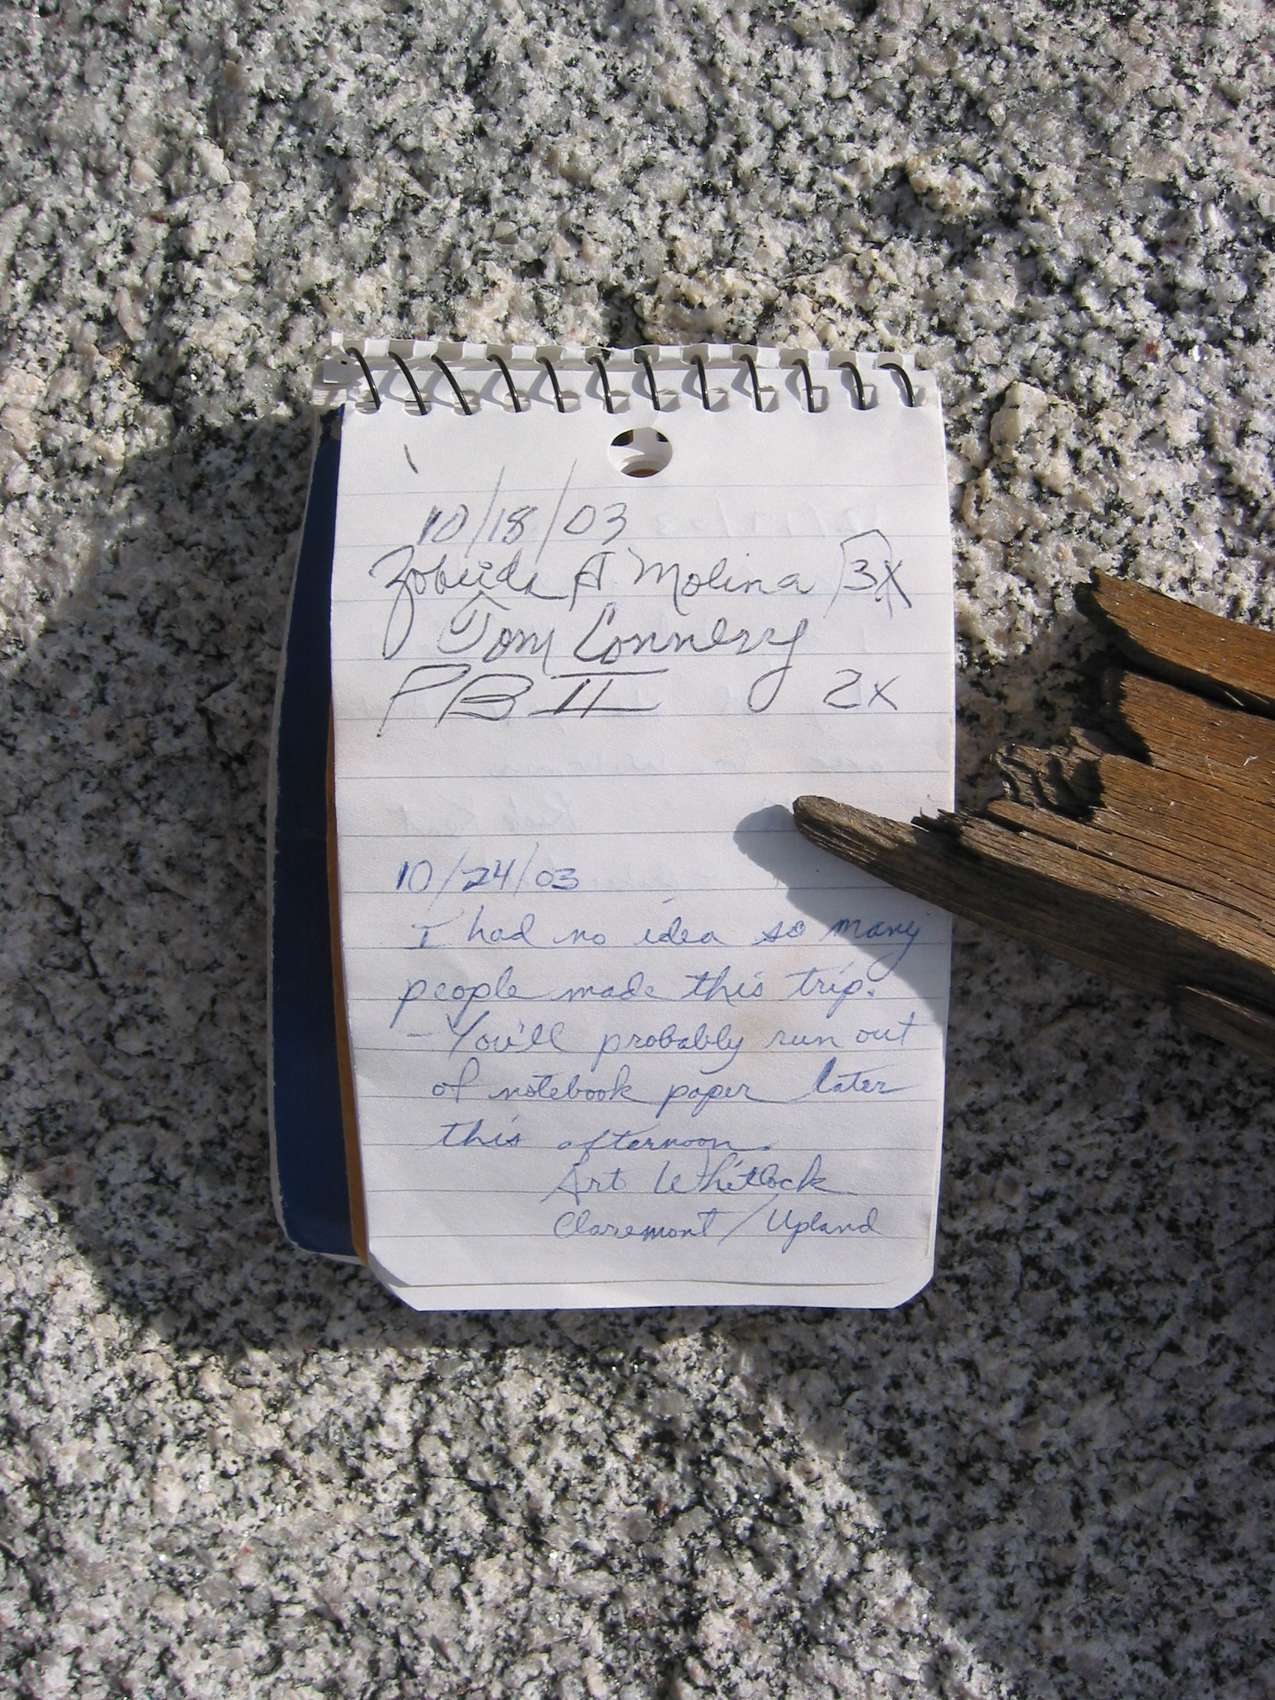 10/18/03
Zobeida A Molina 3x
Tom Connery
PB II 2x
10/24/03
I had no idea so many
people made this trip.
- You'll probably run out
of notebook paper later
this afternoon.
Art Whitlock
Claremont / Upland